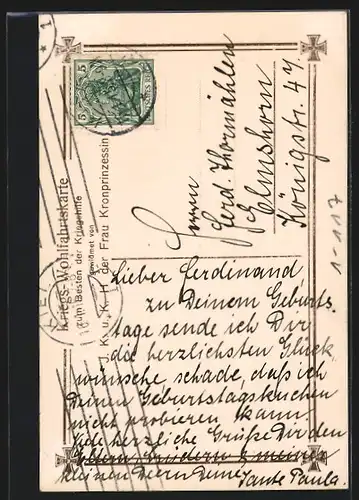 Kriegs-Wohlfahrtskarte
zum Besten der Kriegshilfe
gewidmet von
J. K. u. K. H. der Frau Kronprinzessin
Herrn
Ferd Thormählen
Elmshorn
Königstr. 47
Lieber Ferdinand
zu Deinem Geburts-
tage sende ich Dir
die herzlichsten Glück-
wünsche, schade, daß ich
Deinen Geburtstagskuchen
nicht probieren kann.
herzliche Grüße Dir den
Eltern, Brüdern &
kleinen Deine
Tante Paula.
1-117